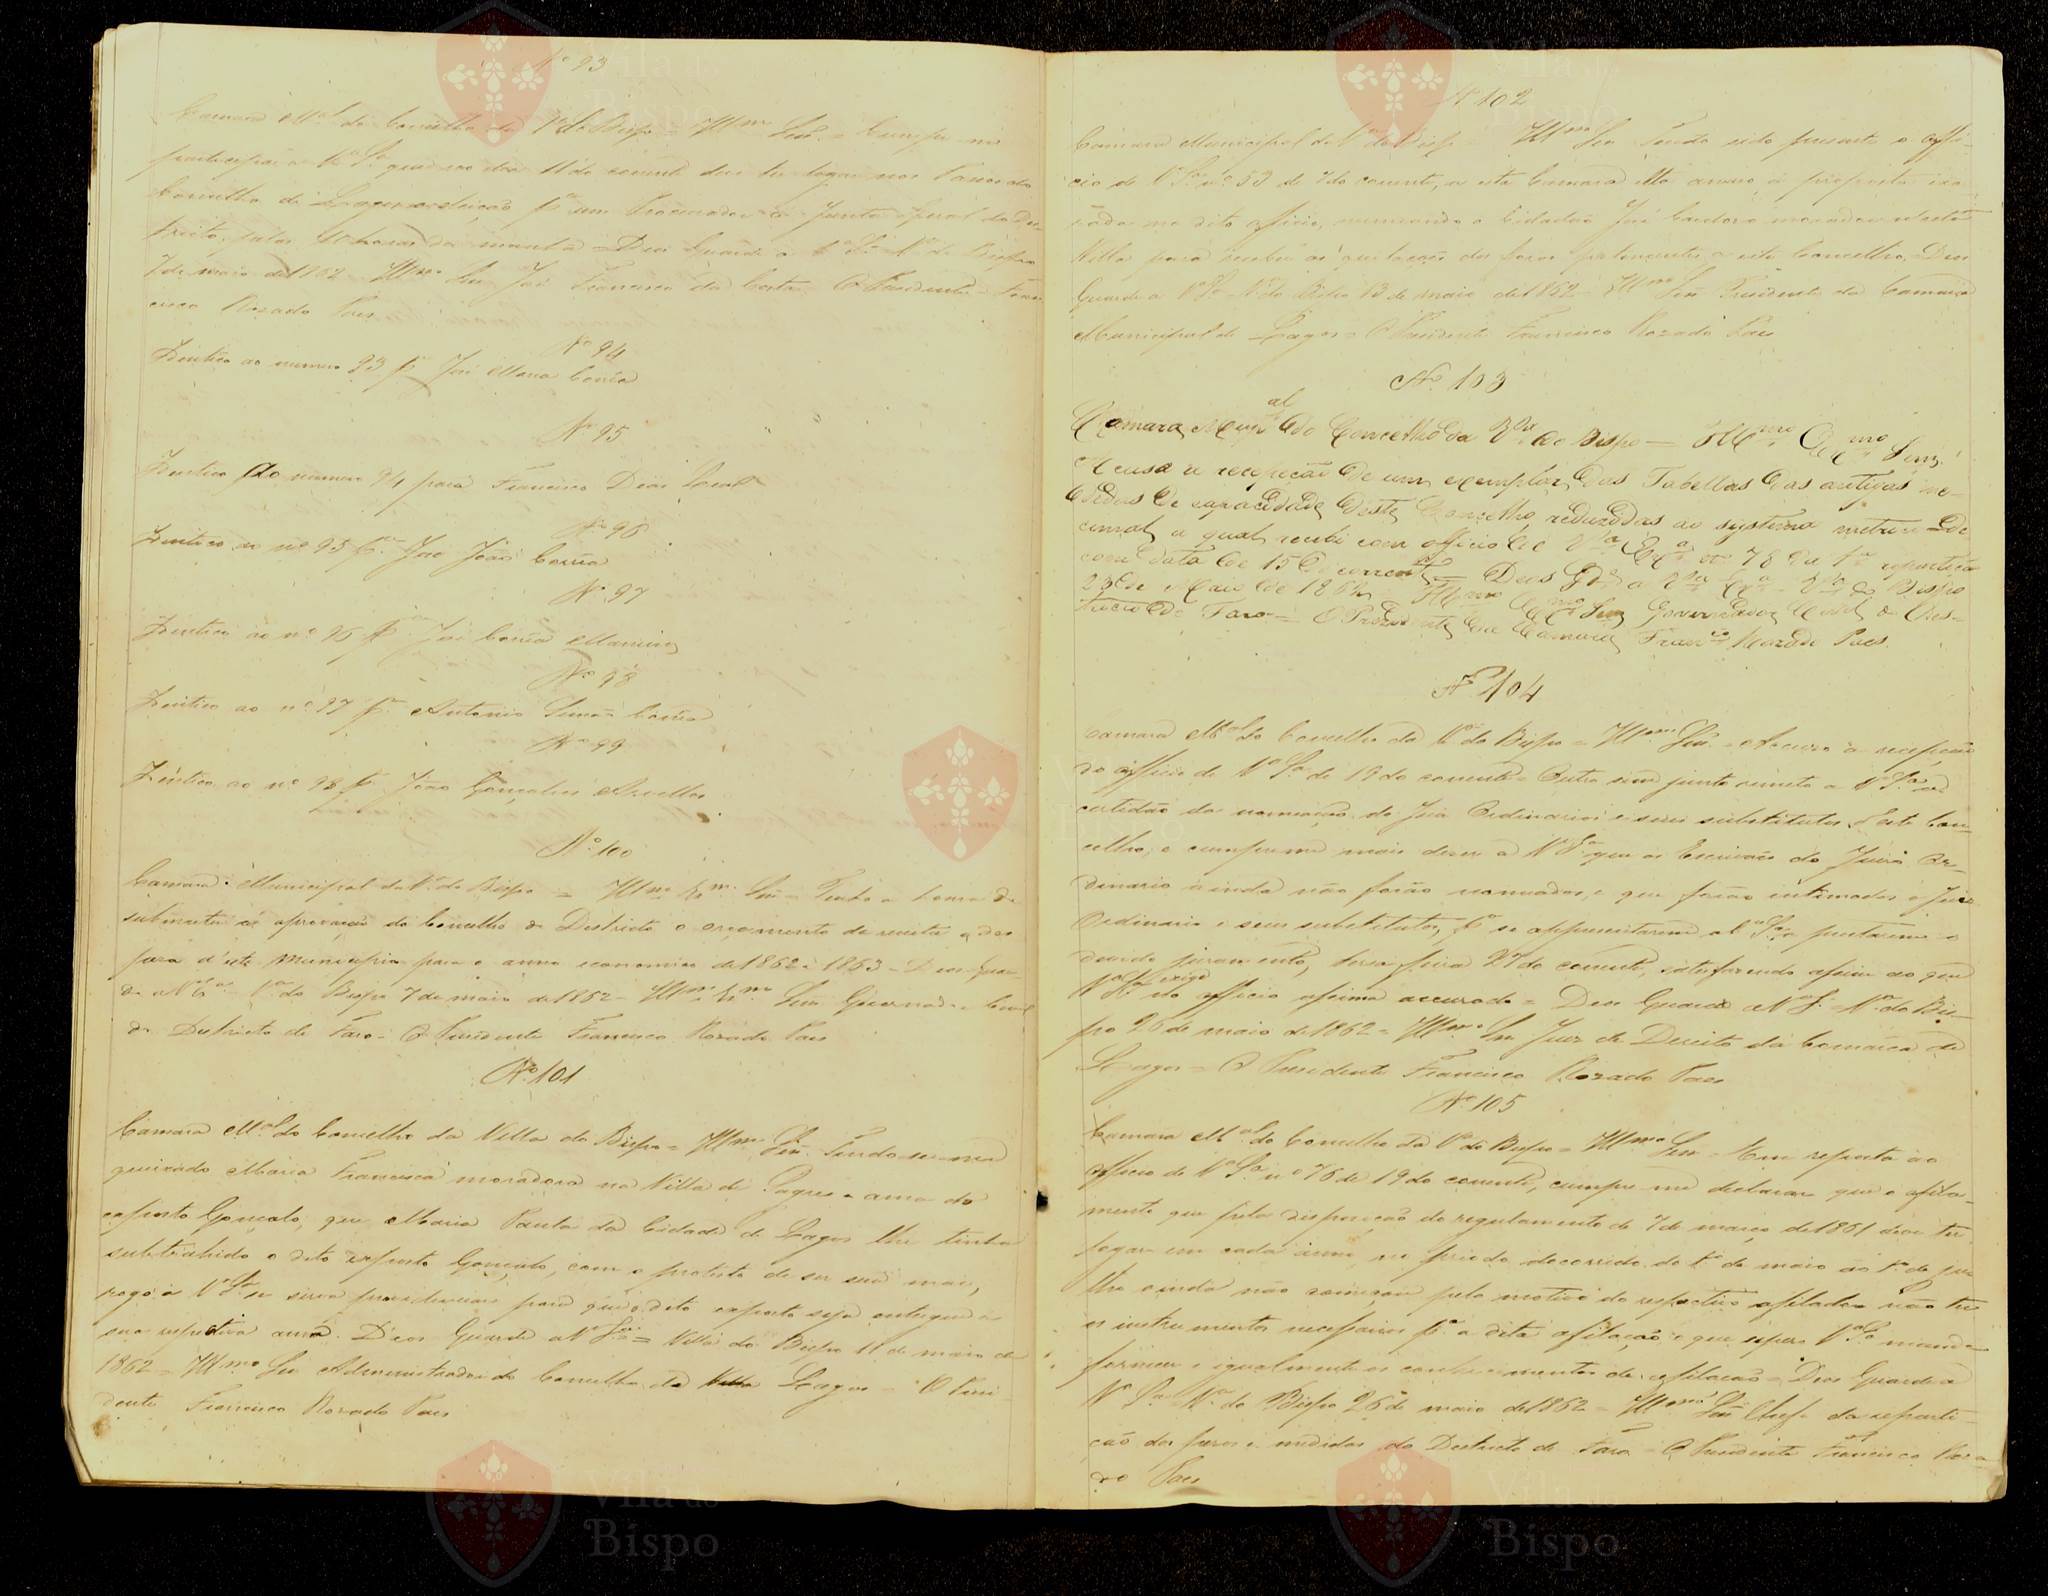 Nº 93
Camara Mal do Concelho da Vª do Bispo = Illmo Snr. = Cumpre-me
participar a Vª Sª que no dia 11 do corrente deve ter logar nos Paços do
Concelho de Lagos a eleição pª um Procurador á Junta Geral do Des-
tricto, pelas 10 horas da manhã = Deos Guarde a Vª Sª Vª do Bispo
7 de maio de 1862 Illmo Snr José Francisco da Costa O Presidente Fran-
cisco Rozado Paes
Nº 94
Identico ao numero 93 pª José Maria Corrêa
Nº 95
Identico ao numero 94 para Francisco Dias Leal
Nº 96
Identico ao nº 95 pª José João Corrêa
Nº 97
Identico ao nº 96 pª José Corrêa
Nº 98
Identico ao nº 97 pª Antonio Corrêa
Nº 99
Identico ao nº 98 pª João Gonçalves
Nº 100
Camara Municipal da Vª do Bispo = Illmo Exmo Snr = Tenho a honra de
submeter á aprovação do Concelho de Districto o orçamento da receita e des-
peza d'este Municipio para o anno economico de 1862 a 1863 = Deos guar-
de a Vª Exª = Vª do Bispo 7 de maio de 1862 = Illmo Exmo Snr Governador Civil
do Districto de Faro = O Presidente Francisco Rozado Paes
Nº 101
Camara Mal do Concelho da Villa do Bispo = Illmo Snr. Tendo-se-me
queixado Maria Francisca moradora na Villa de Sagres e ama do
exposto Gonçalo, que Maria Paula da Cidade de Lagos lhe tinha
subtrahido o dito exposto Gonçalo, com o protesto de ser sua mai,
rogo a Vª Sª se sirva providenciar para que o dito exposto seja entregue á
sua respectiva ama. Deos Guarde a Vª Sª = Villa do Bispo 11 de maio de
1862 = Illmo Snr Administrador do Concelho de Lagos = O Presi-
dente Francisco Rozado Paes
Nº 102
Camara Municipal da Vª do Bispo = Illmo Snr Tendo sido presente o offi-
cio de Vª Sª nº 53 de 7 do corrente, a esta Camara ella á proposta
no dito officio, nomeando o Cidadão José morador nesta
Villa para receber as dos foros pertencentes a este Concelho = Deos
Guarde a Vª Sª Vª do Bispo 13 de maio de 1862 = Illmo Snr Presidente da Camara
Municipal de Lagos = O Presidente Francisco Rozado Paes
Nº 103
Camara Munal do Concelho da Vlla do Bispo = Illmo Exmo Snr.
Acuso a recepção de um exemplar das Tabellas das antigas me-
didas de capacidade deste Concelho, reduzidas ao systema metrico de-
cimal, a qual recebi com officio de Vª Exª nº 78 da 1ª repartição
com data de 15 do corrente = Deus Gde a Vª Exª Vlla do Bispo
23 de Maio de 1862 Illmo Exmo Snr Governador Civil do Dis-
tricto de Faro = O Prezidente da Camara Franco Rozado Paes.
Nº 104
Camara Mal do Concelho da Vª do Bispo = Illmo Snr. = Accuso a recepção
do officio de Vª Sª de 19 do corrente = Outro sim junto remeto a Vª Sª a
certidão da nomeação do Juiz Ordinario e seus substitutos d'este Con-
celho, e cumpre-me mais dizer a Vª Sª que os Escrivães do Juizo Or-
dinario ainda não forão nomeados, e que forão intimados o Juiz
Ordinario e seus substitutos, pª se appresentarem a Vª Sª a prestarem o
devido juramento, terça feira 27 do corrente, satisfazendo assim ao que
Vª Sª exige no officio assima accusado = Deos Guarde a Vª Sª = Vª do Bis-
po 26 de maio de 1862 = Illmo Snr Juiz de Direito da Comarca de
Lagos = O Presidente Francisco Rozado Paes
Nº 105
Camara Mal do Concelho da Vª do Bispo = Illmo Snr = Em reposta ao
officio de Vª Sª nº 76 de 19 do corrente, cumpre-me declarar que o afila-
mento que pela disposição do regulamento de 7 de março de 1861 deve ter
logar em cada anno, no periodo decorrido do 1º de maio ao 1º de ju-
lho ainda não começou pelo motivo do respectivo afilador não ter
os instrumentos necessarios pª a dita afilação, e que espero Vª Sª mande
fornecer e igualmente os conhecimentos de afilação = Deos Guarde a
Vª Sª Vª do Bispo 26 de maio de 1862 = Illmo Snr Chefe da reparti-
ção dos pesos e medidas do Destricto de Faro = O Presidente Francisco Roza-
do Paes
Vila do
Bispo
Vila do
Bispo
Vila do
Bispo
Vila do
Bispo